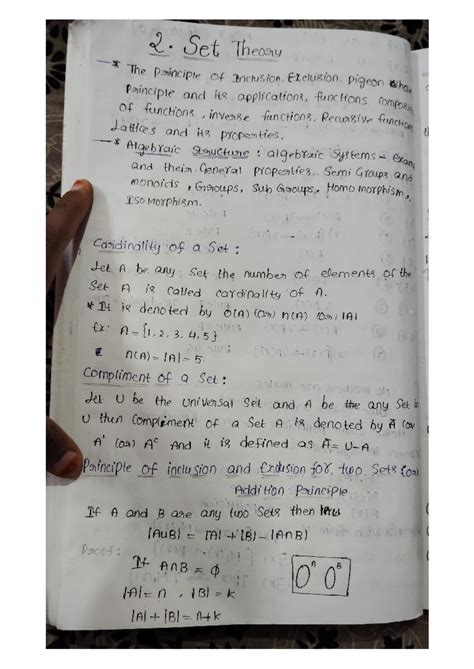 2. Set Theory
* The principle of Inclusion, Exclusion, pigeon hole
principle and its applications, functions composition
of functions, inverse functions, Recursive functions
Lattices and its properties.
* Algebraic Structure : algebraic Systems - Exam
and their General properties.. Semi Groups and
monoids, Groups, Sub Groups, Homo morphism,
Iso Morphism.
Cardinality of a Set :
Let A be any set the number of elements of the
Set A is called cardinality of A.
* It is denoted by O(A) (or) n(A) (or) |A|
Ex: A = {1, 2, 3, 4, 5}
n(A) = |A| = 5.
Compliment of a Set :
Let U be the Universal Set and A be the any Set in
U then Compliment of a Set A is denoted by Ā (or
A' (or) Aᶜ And it is defined as Ā = U-A
Principle of inclusion and Exclusion for two Sets (or
Addition Principle
If A and B are any two Sets then
|AUB| = |A| + |B| - |A∩B|
Proof :
If A∩B = ϕ
A B
|A| = n , |B| = k
|A| + |B| = n+k